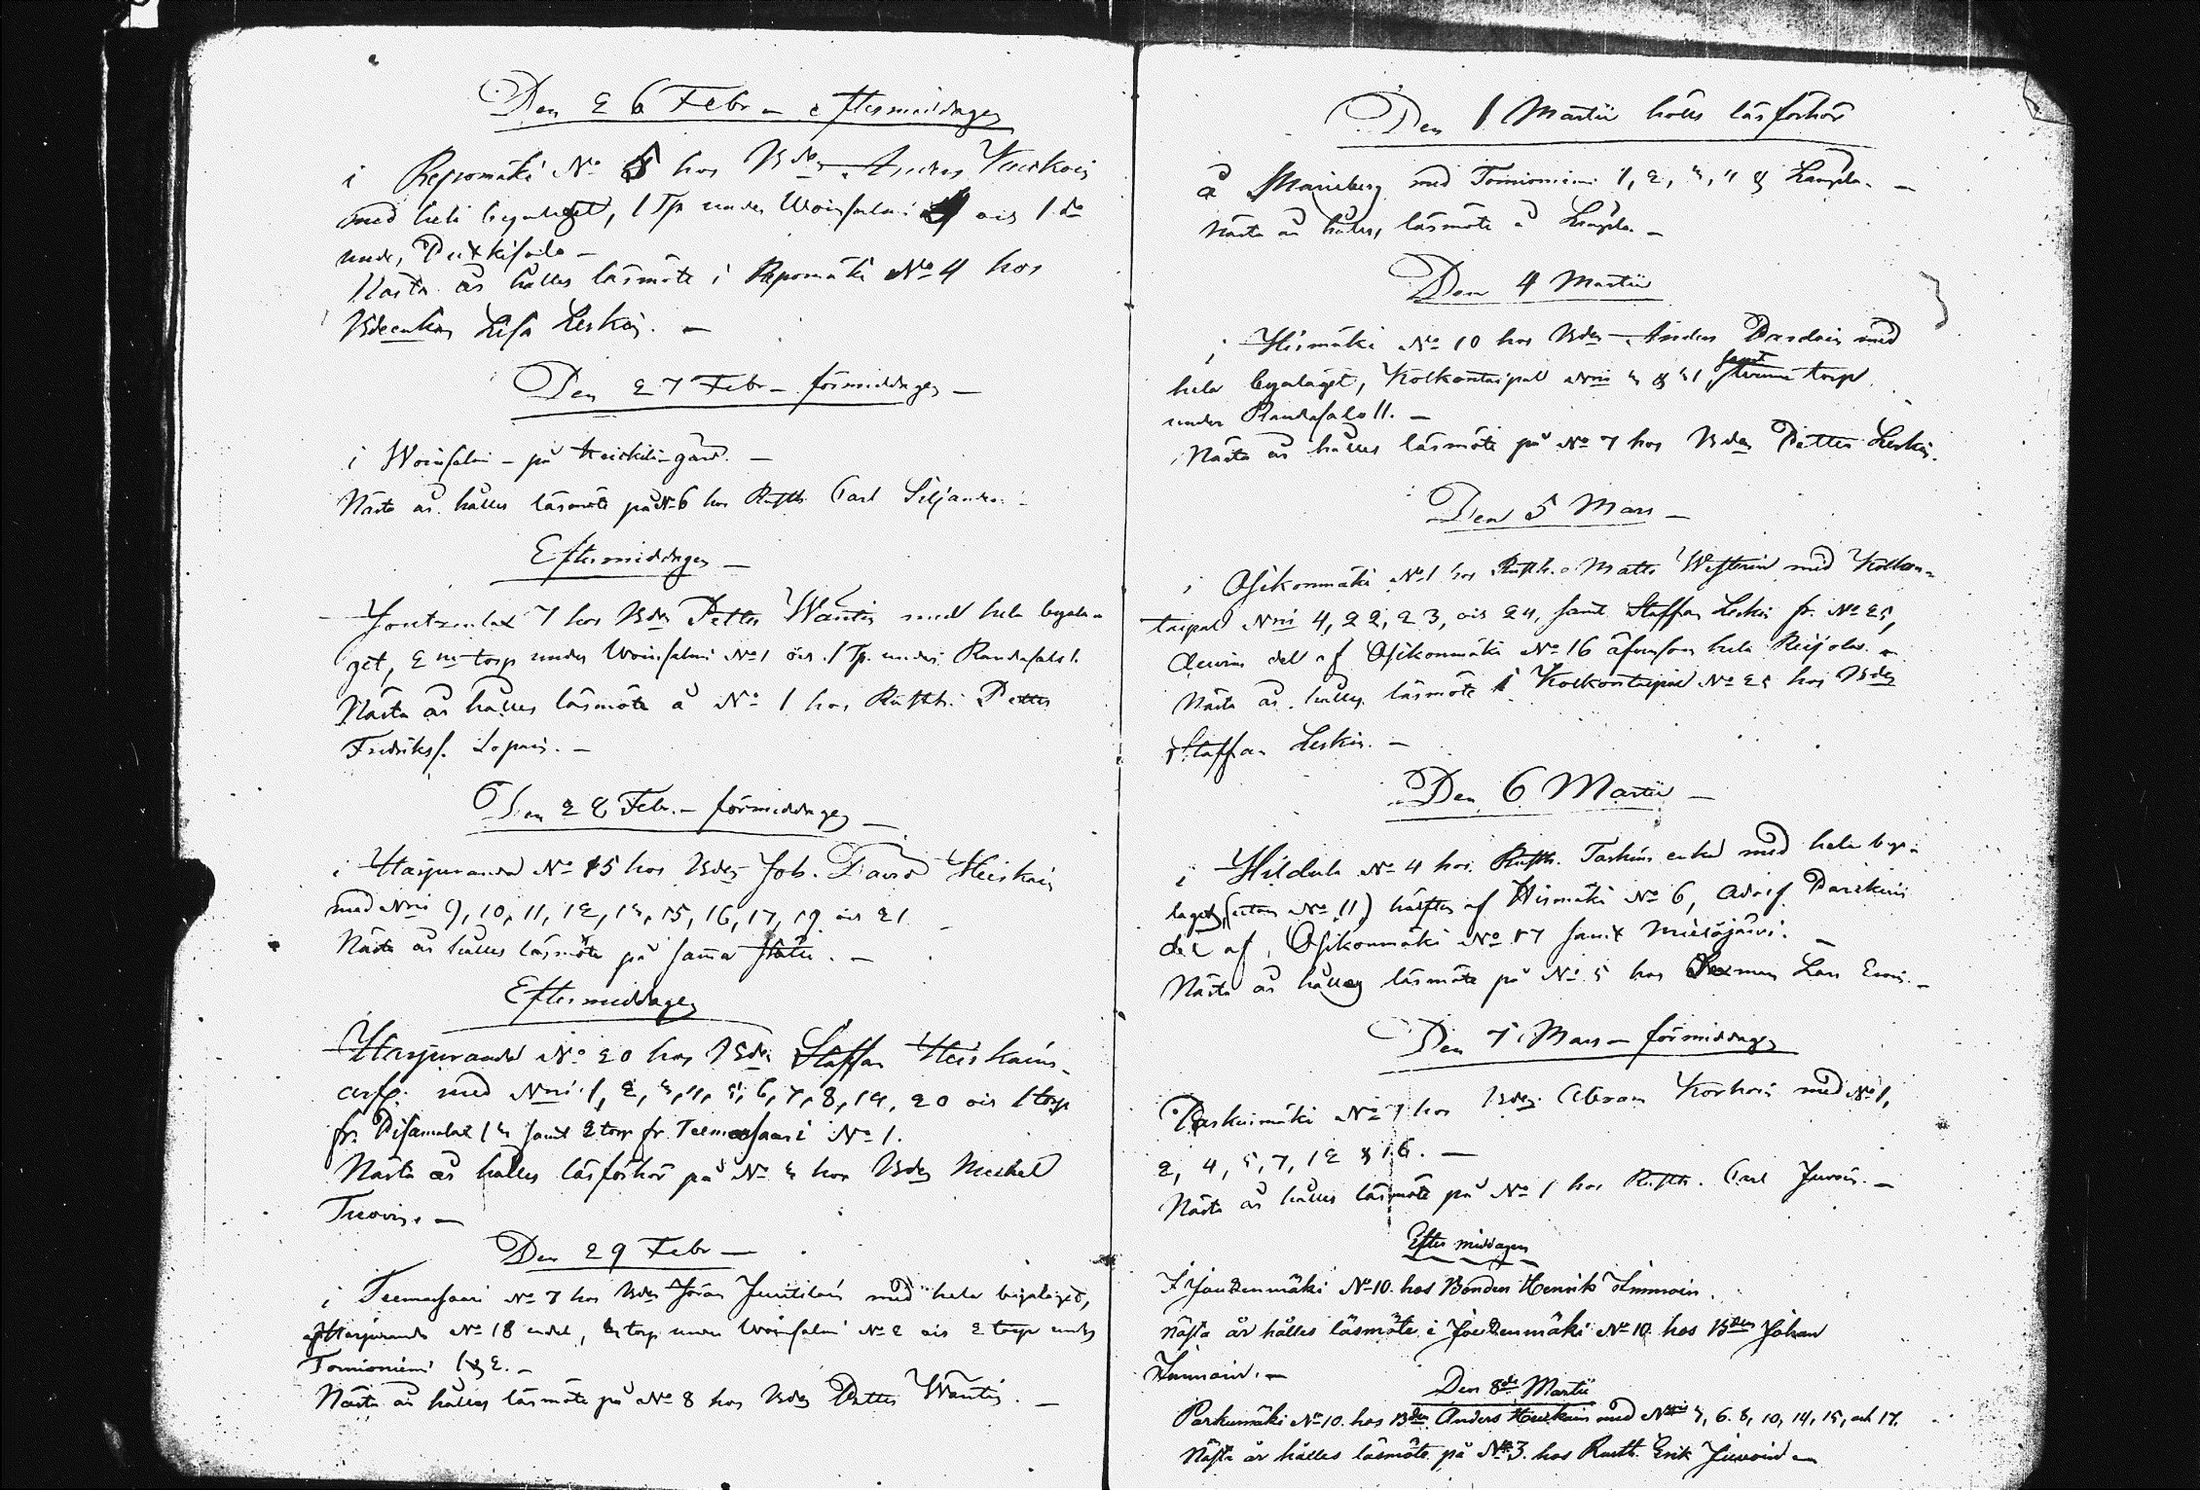 Den 26 Febr – eftermiddagen
i Repomäki No 5 hos Bdn Anders Kurkoin
med hela byalaget, 1 Tp under Woinsalmi och 1 do
under Putkisalo –
Nästa år hålles läsmöte i Repomäki No 4 hos
Bdeenkan Lisa Leskin. –
Den 27 Febr – förmiddagen –
i Woinsalmi – på gård. –
Nästa år hålles läsmöte på No 6 hos Rusth. Carl Siljander. –
Eftermiddagen –
Joutzenlax 7 hos Bdn Petter Wäntin med hela byala-
get, 2 ne torp under Woinsalmi No 1 och 1 Tp. under Randasalo 1.
Nästa år hålles läsmöte å No 1 hos Rusth. Petter
Fredriks. Lopain. –
Den 28 Febr. – förmiddagen –
i Harjuranda No 15 hos Bdn Joh. David Heiskain
med Nris 9, 10, 11, 12, 13, 15, 16, 17, 19 och 21 –
Nästa år hålles läsmöte på samma ställe. –
Eftermiddagen
Harjuranda No 20 hos Bdn Staffan Heiskains
arfv. med Nris 1, 2, 3, 4, 5, 6, 7, 8, 14, 20 och 1 torp
fr. Pisamalax 13 samt 2 torp fr. Teemassaari No 1.
Nästa år hålles läsförhör på No 3 hos Bdn Michel
Tuovin. –
Den 29 Febr –
i Teemassaari No 7 hos Bdn Jöran Juutilain med hela byalaget,
af Harjuranda No 18 endel, torp under Woinsalmi No 2 och 2 torp under
Tornioniemi 1 & 2. –
Nästa år hålles läsmöte på No 8 hos Bdn Petter Wäntin. –
Den 1 Martii hölls läsförhör
å Marieberg med Tornioniemi 1, 2, 3, 4 & –
Nästa år hålles läsmöte å –
Den 4 Martii
i Hirmäki No 10 hos Bdn Anders Pardain med
hela byalaget, Kolkontaipal Nris 3 & 31, samt torp
under Randasalo 11. –
Nästa år hålles läsmöte på No 7 hos Bdn Petter Leskin.
Den 5 Mars –
i Osikonmäki No 1 hos Rusth. Matts Westerin med Kolkon-
taipal Nris 4, 22, 23, och 24, samt Staffan Leskin fr. No 25,
del af Osikonmäki No 16 äfvensom hela –
Nästa år hålles läsmöte i Kolkontaipal No 25 hos Bdn
Staffan Leskin. –
Den 6 Martii –
i Hildula No 4 hos Rusth. Taskins enka med hela bya-
laget (utom No 11) hälften af Hirmäki No 6, Adolf
del af Osikonmäki No 17 samt –
Nästa år hålles läsmöte på No 5 hos Lars –
Den 7 Mars – förmiddagen
Parkuimäki No 7 hos Bdn Abram Korhoin med No 1,
2, 4, 5, 7, 12 & 16. –
Nästa år hålles läsmöte på No 1 hos Rusth. Carl Juvoin. –
Efter middagen
I Joutzenmäki No 10. hos Bonden Henrik Immoin.
Nästa år hålles läsmöte i Joutzenmäki No 10. hos Bden Johan
Immoin. –
Den 8de Martii
Parkumäki No 10. hos Bden Anders Heiskain med Nris 3, 6. 8, 10, 14, 15, och 17.
Nästa år hålles läsmöte på No 3. hos Rusth. Erik Juvoin –